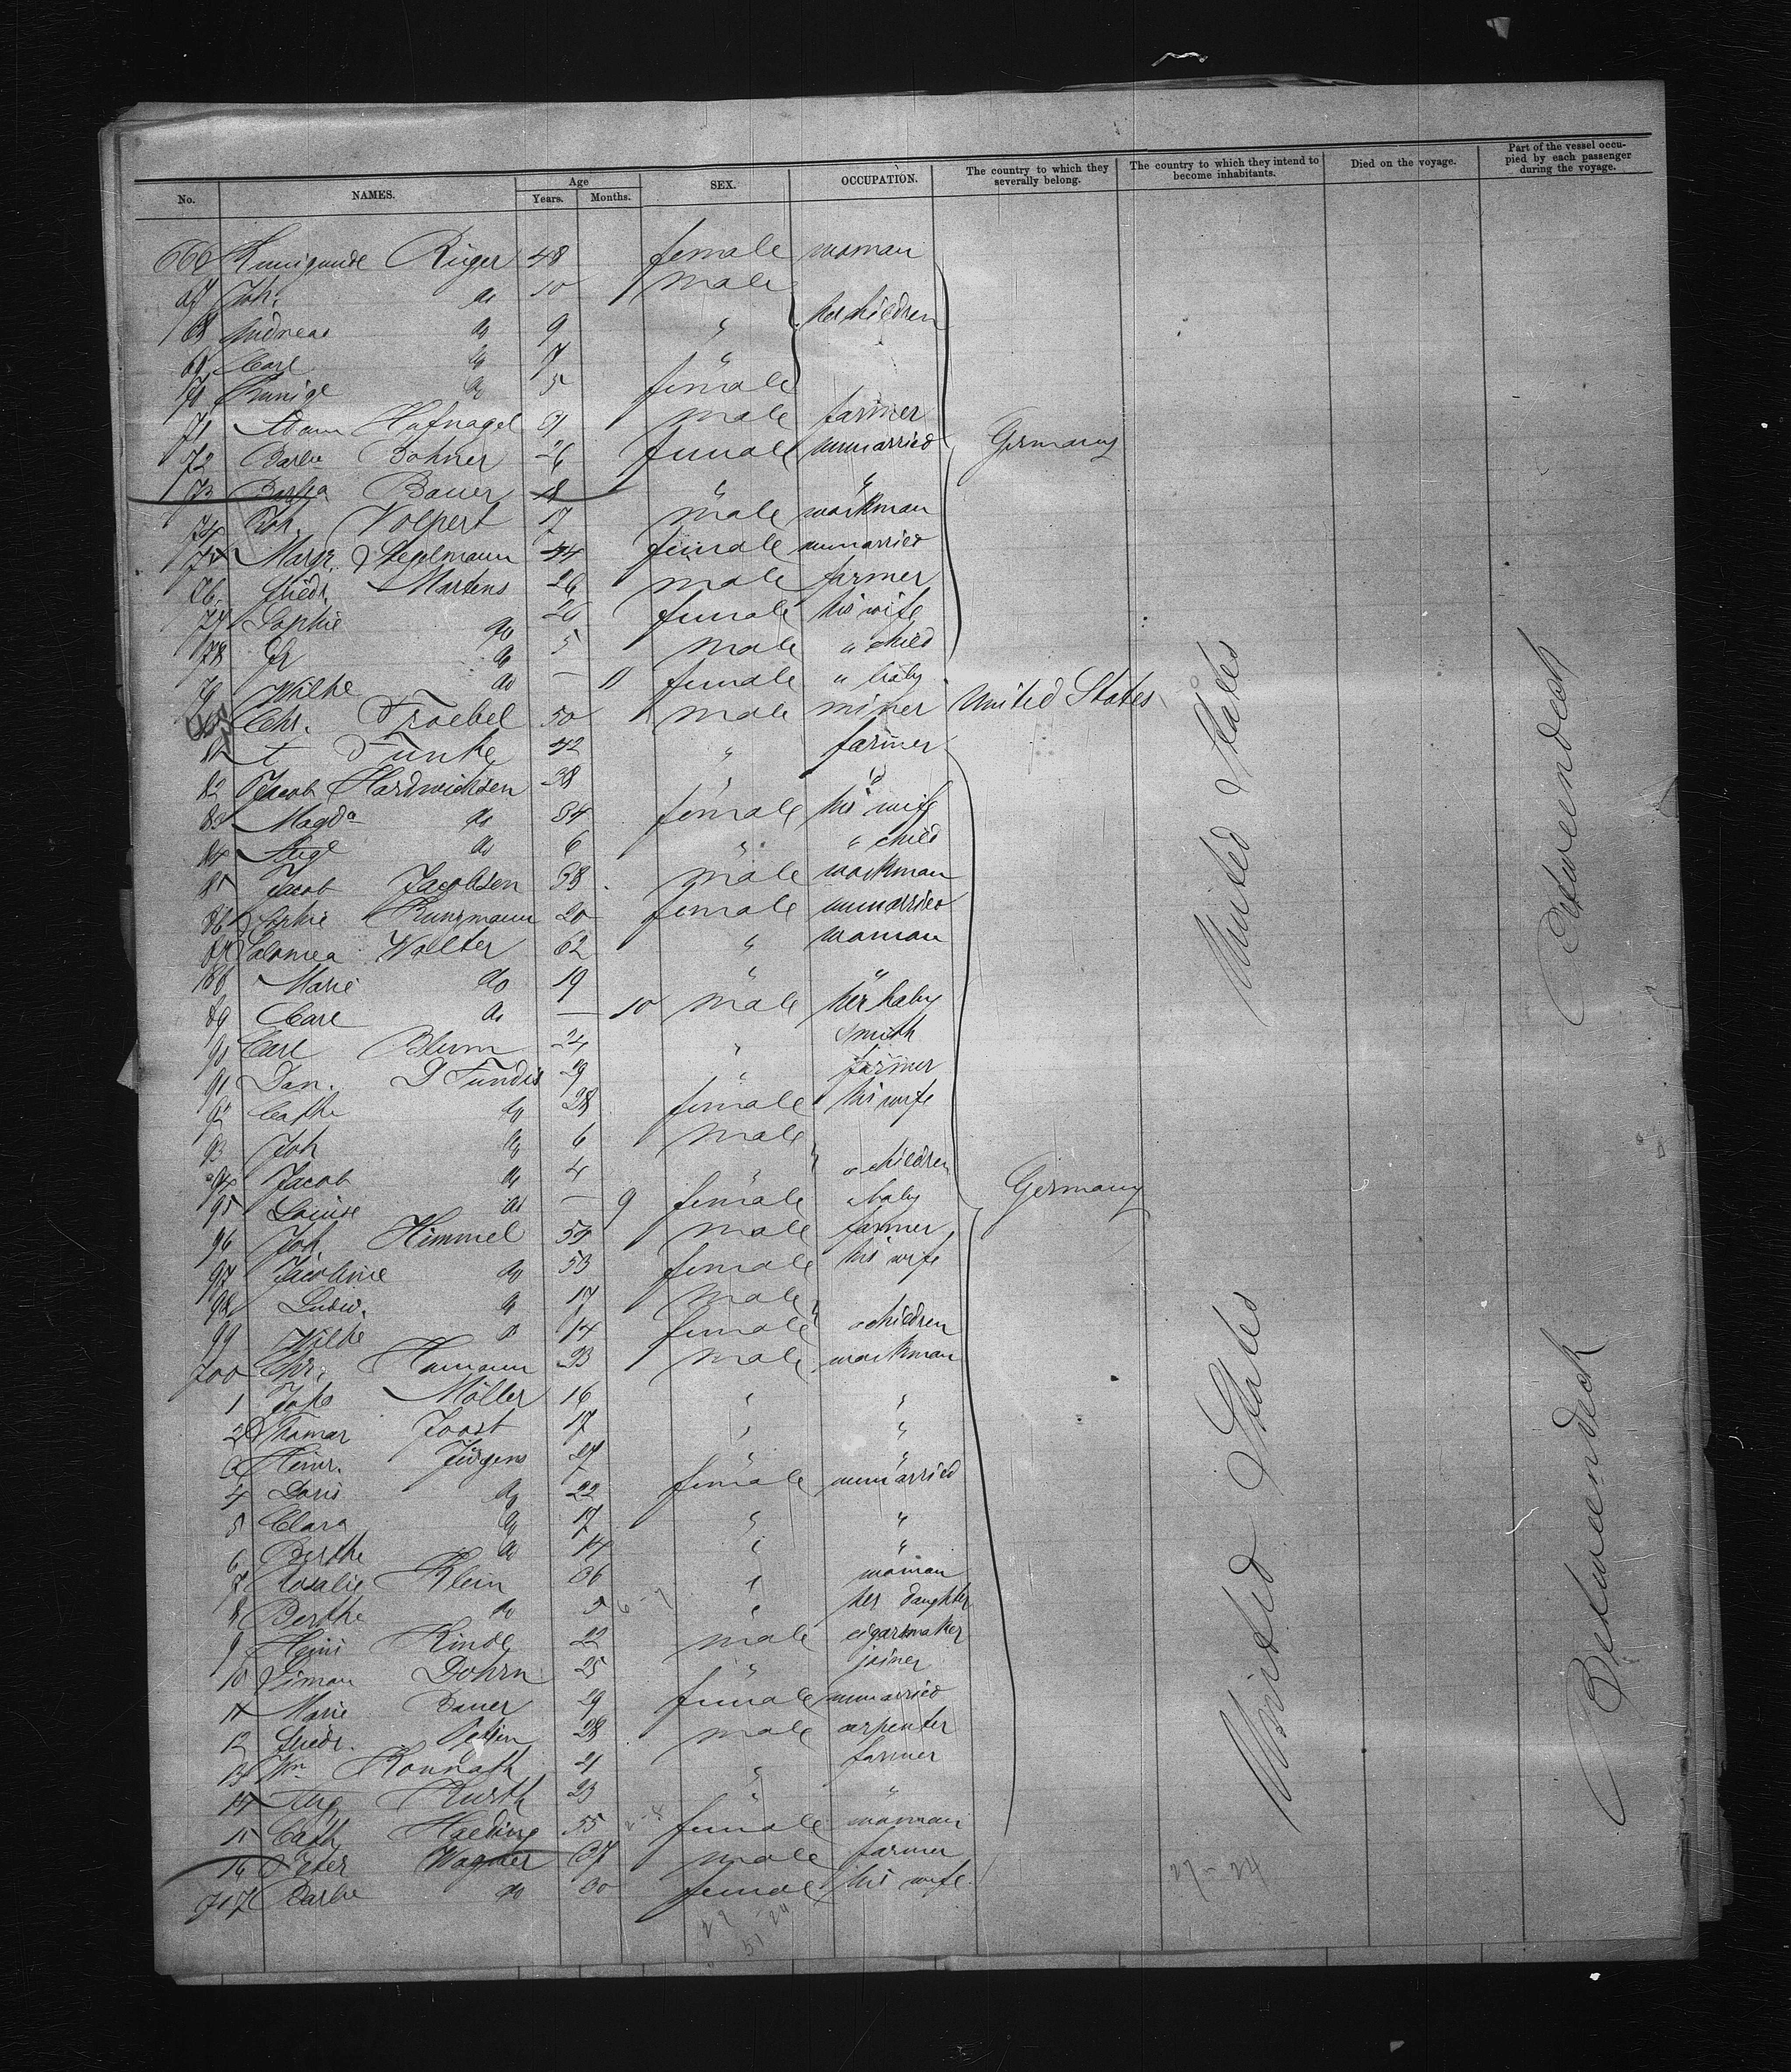 No. NAMES. Age Years. Months. SEX. OCCUPATION. The country to which they severally belong. The country to which they intend to become inhabitants. Died on the voyage. Part of the vessel occupied by each passenger during the voyage.
666 Kunigunde Rüger 48 female woman
67 Joh. do 10 male
68 Andreas do 9 " her children
69 Carl do 7 "
70 Kunige do 5 female
71 Adam Hufnagel male farmer
72 Barba Bohner 26 female unmarried Germany
73 Barba Bauer 18 " "
74 Joh. Volpert 17 male workman
75 Margr. Stegelmann 44 female unmarried
76 Friedr. Martens 26 male farmer
77 Sophie do 26 female his wife
78 Fr do 5 male " child
79 Wilhe do — 11 female " baby
80 Chr. Froebel 50 male miner United States
81 Funke 42 " farmer
82 Jacob Hardwichsen 38 " "
83 Magda do 34 female his wife
84 Auge do 6 " " child
85 Jacob Jacobsen 38 male workman
86 Sophie Kunzmann 20 female unmarried
87 Salomea Walter 62 " woman
88 Marie do 19 " "
89 Carl do — 10 male her baby
90 Carl Blum 24 " smith
91 Dan. D Fundis 29 " farmer
92 Cathe do 28 female his wife
93 Joh do 6 male
94 Jacob do 4 " " children
95 Louise do — 9 female " baby Germany
96 Joh. Himmel 54 male farmer
97 Jacobine do 53 female his wife
98 Ludw. do 17 male
99 Wilhe do 14 female " children
700 Chr. Hamann 23 male workman
1 Johs Möller 16 " "
2 Thomas Joost 17 " "
3 Heinr. Jürgens 27 " "
4 Doris do 22 female unmarried
5 Clara do 17 " "
6 Berthe do 14 " "
7 Rosalie Klein 36 " woman
8 Berthe do 5 " her daughter
9 Heini Kinde 22 male cigarrmaker
10 Siman Dohrn 25 " joiner
11 Marie Bauer 29 female unmarried
12 Friedr. 28 male carpenter
13 Wm Konrath 21 " farmer
14 Aug Kurth 23 " "
15 Cath Haeding 55 female woman
16 Peter Wagner 37 male farmer
717 Barbe do 30 female his wife
United States
Betweendeck
United States
Betweendeck
27 - 24
27 24
51